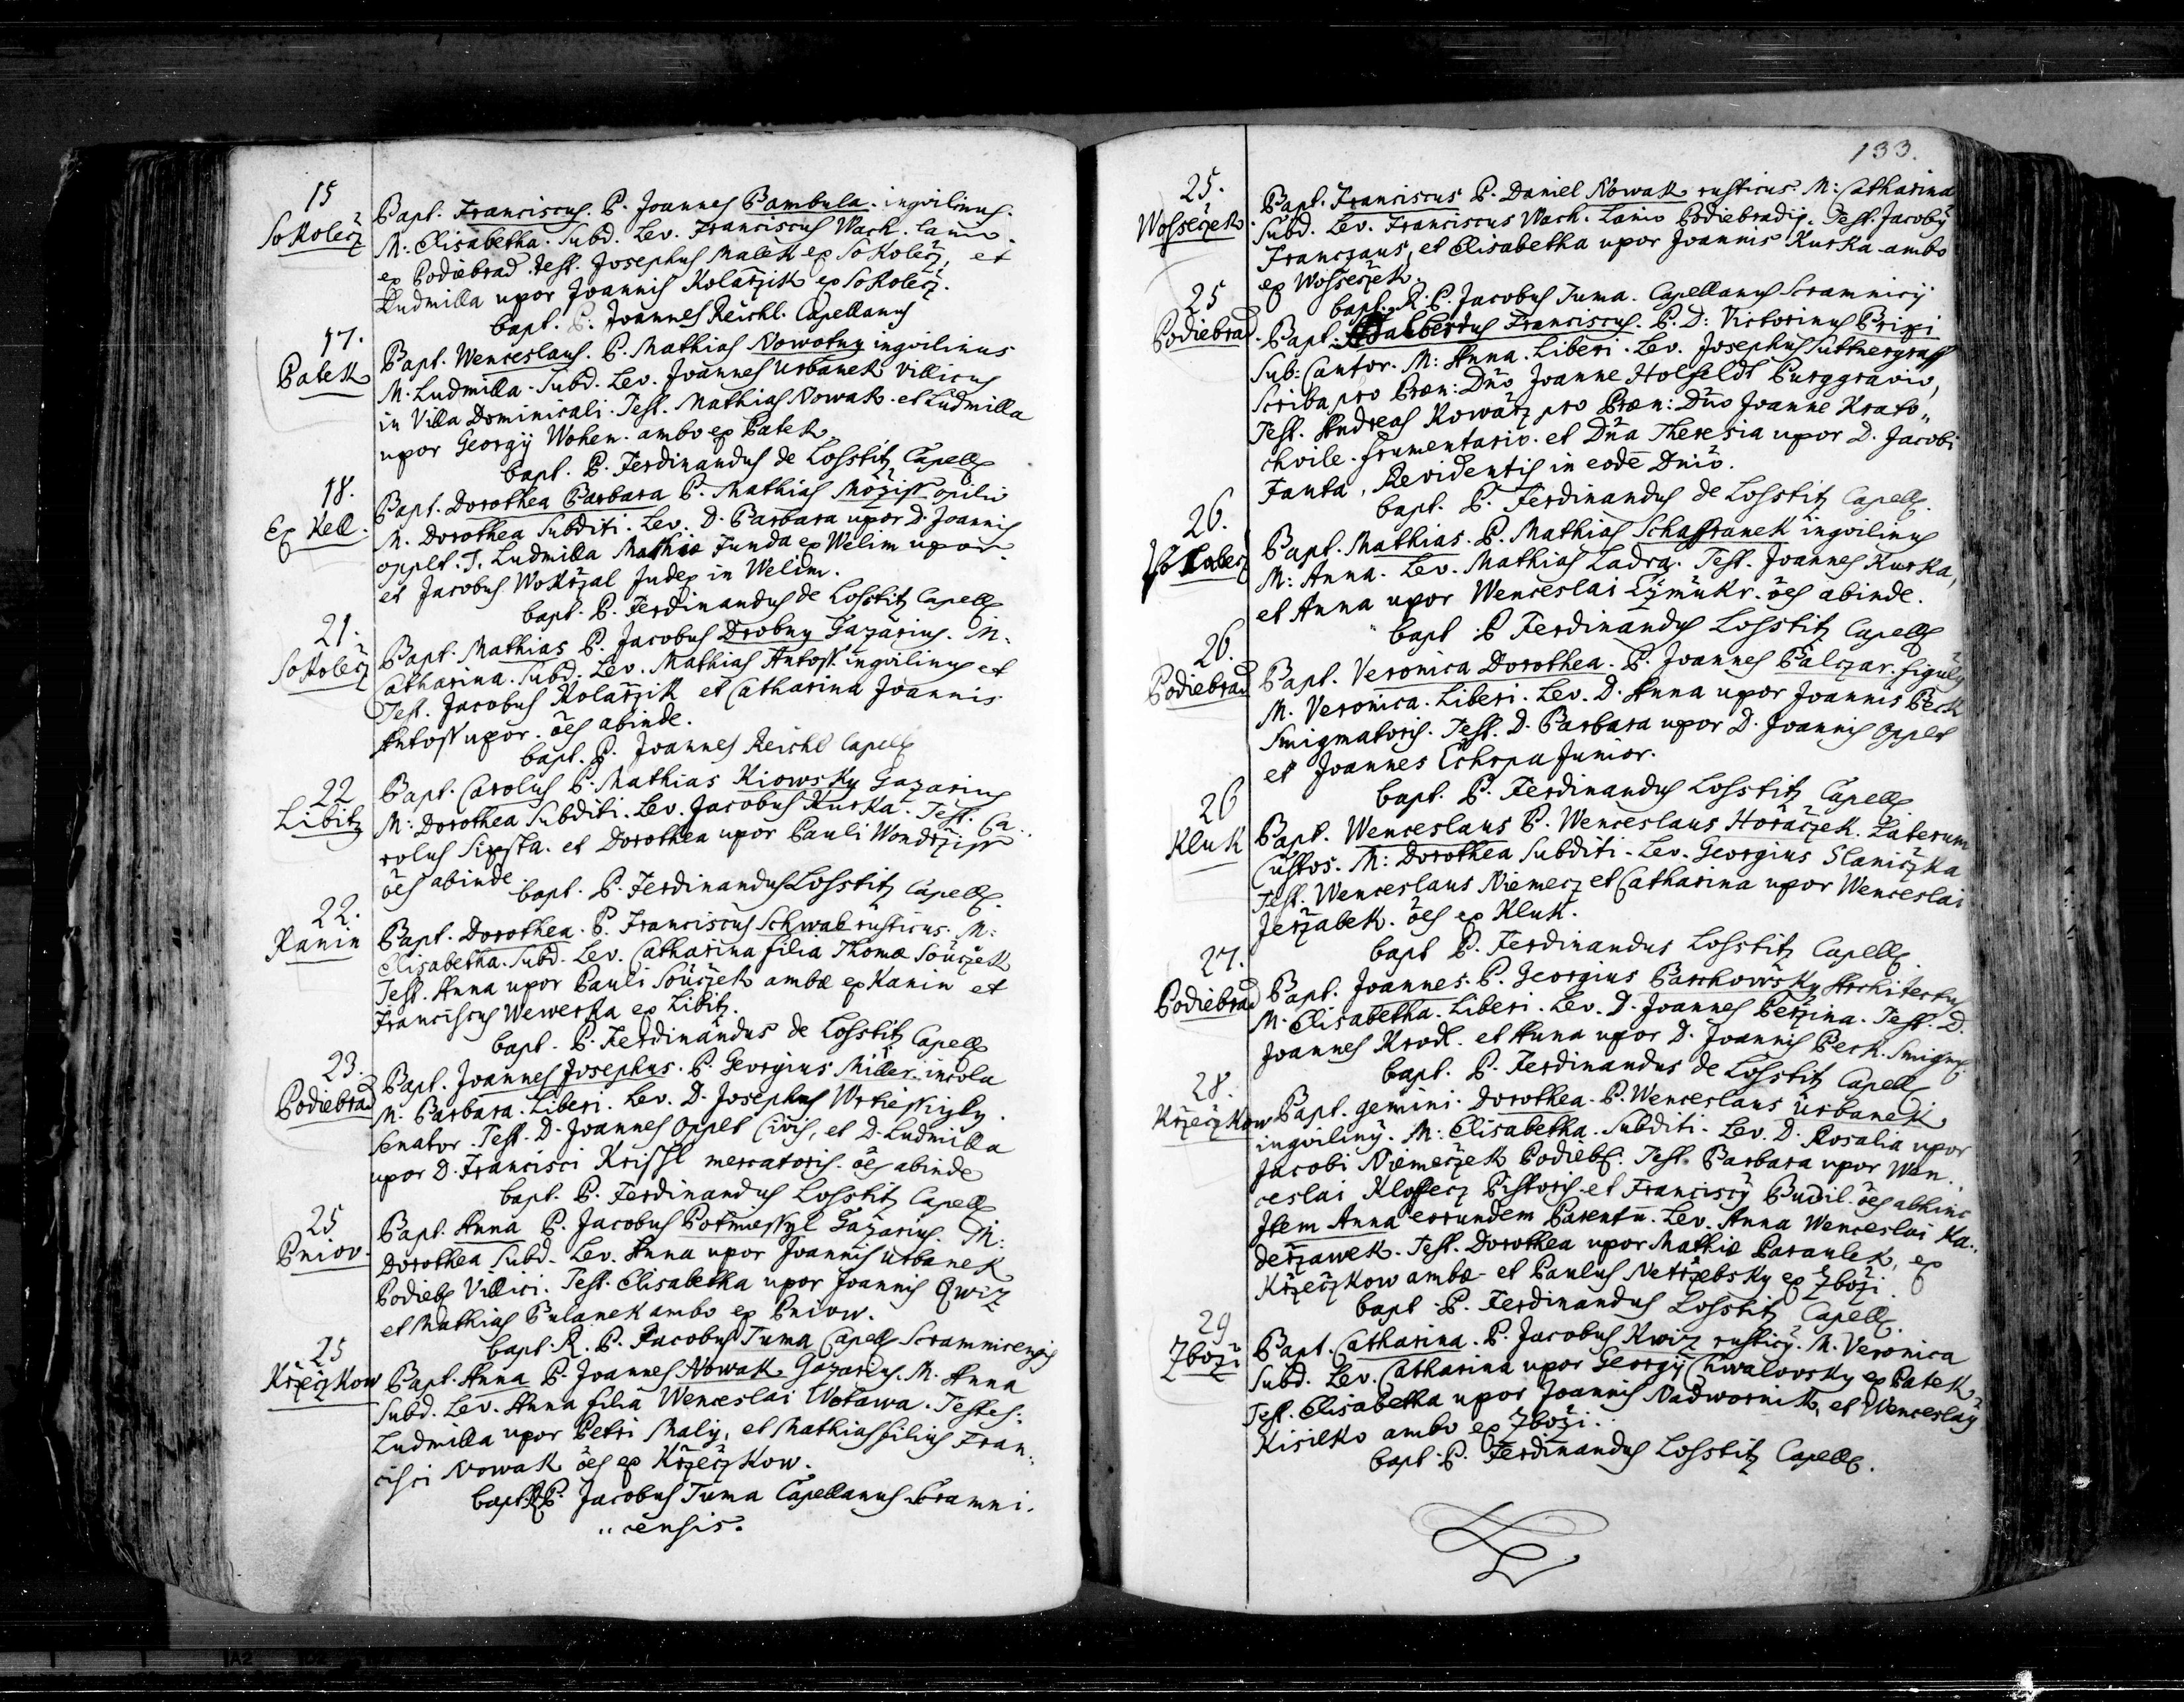 15
Sokolecz
Bapt. Franciscus. P. Joannes Bambula. inqvilinus.
M: Elisabetha. Subd. Lev. Franciscus Wach. Lanio.
ex Podiebrad. Test. Josephus Malek ex Sokolecz, et
Ludmilla uxor Joannis Kolarzik ex Sokolecz.
bapt. P. Joannes Reichl. Capellanus
17.
Patek
Bapt. Wenceslaus. P. Mathias Nowotny inqvilinus
M. Ludmilla. Subd. Lev. Joannes Urbanek villicus
in Villa Dominicali. Test. Mathias Nowak. et Ludmilla
uxor Georgÿ Wohen. ambo ex Patek
bapt. P. Ferdinandus de Losstitz Capell
18.
Ex Kell.
Bapt. Dorothea Barbara P. Mathias opilio
M. Dorothea Subditi. Lev. D. Barbara uxor D. Joannis
opplt. T. Ludmilla Mathiæ Funda ex Welim uxor.
et Jacobus Wokrzal Judex in Welim.
bapt. P. Ferdinandus de Losstitz Capell
21.
Sokolecz
Bapt. Mathias P. Jacobus Drobny Gazarius. M:
Catharina. Subd. Lev. Mathias Antoss. inqvilinus et
Test. Jacobus Kolarzik et Catharina Joannis
Antoss uxor. oes abinde.
bapt. P. Joannes Reichl Capell
22
Libitz
Bapt. Carolus P. Mathias Kiowsky Gazarius
M: Dorothea Subditi. Lev. Jacobus Kurka. Test. Ca..
rolus Sixsta. et Dorothea uxor Pauli Wondrziss
oes abinde.
bapt. P. Ferdinandus Losstitz Capell.
22.
Kanin
Bapt. Dorothea. P. Franciscus Schwab rusticus. M:
Elisabetha. Subd. Lev. Catharina filia Thomæ Souczek
Test. Anna uxor Pauli Souczek ambæ ex Kanin et
Franciscus Wewerka ex Libitz.
bapt. P. Ferdinandus de Losstitz Capell
23.
Podiebrad
Bapt. Joannes Josephus. P. Georgius Miller. incola
M. Barbara. Liberi. Lev. D. Josephus
Senator. Test. D. Joannes Opplt Civis, et D. Ludmilla
uxor D. Francisci Krissl mercatoris. oes abinde
bapt. P. Ferdinandus Losstitz Capell
25
Pniov.
Bapt. Anna P. Jacobus Potmiessyl Gazarius. M:
Dorothea Subd. Lev. Anna uxor Joannis Urbanek
Podieb Villici. Test. Elisabetha uxor Joannis Qwiz
et Mathias Bulanek ambo ex Pniow.
bapt. R. P. Jacobus Tuma Capell Scramnicensis
25
Krzeczkow
Bapt. Anna P. Joannes Nowak Gazarius. M. Anna
Subd. Lev. Anna filia Wenceslai Wotawa. Testes.
Ludmilla uxor Petri Maly, et Mathias filius Fran..
cisci Nowak oes ex Krzeczkow.
bapt R P. Jacobus Tuma Capellanus Scramni.
..censis.
133.
25.
Wosseczek
Bapt. Franciscus P. Daniel Nowak rusticus. M: Catharina
Subd. Lev. Franciscus Wach. Lanio Podiebradis. Test. Jacobÿ
Franczaus, et Elisabetha uxor Joannis Kurka ambo
ex Wosseczek.
bapt. R. P. Jacobus Tuma. Capellanus Scramnicÿ
25
Podiebrad.
Bapt. Adalbertus Franciscus. P. D: Victorinus Brixi
Sub: Cantor. M: Anna. Liberi. Lev. Josephus Suttnergraff
Scriba pro Præn: Dno Joanne Holfeldt Purggravio,
Test. Andreas Kowarz pro Præn: Dno Joanne Krato..
chvile. frumentario. et Dna Theresia uxor D. Jacobi
Janta, Revidentis in eode Dnio.
bapt. P. Ferdinandus de Losstitz Capell.
26.
Bapt. Mathias. P. Mathias Schaffranek inqvilinus
M: Anna. Lev. Mathias Ladra. Test. Joannes Kurka,
et Anna uxor Wenceslai Czmukr. oes abinde.
bapt. P Ferdinandus Losstitz Capell
26.
Podiebrad
Bapt. Veronica Dorothea. P. Joannes Balczar. figulÿ
M. Veronica. Liberi. Lev. D. Anna uxor Joannis Beck
Smigmatoris. Test. D. Barbara uxor D. Joannis Opplt
et Joannes Echspa Junior.
bapt. P. Ferdinandus Losstitz Capell
26
Kluk
Bapt. Wenceslaus P. Wenceslaus Horaczek. Laterum
Custos. M: Dorothea Subditi. Lev. Georgius Slaniczka
Test. Wenceslaus Niemecz et Catharina uxor Wenceslai
Jerzabek. oes ex Kluk.
bapt P. Ferdinandus Losstitz Capell.
27.
Podiebrad
Bapt. Joannes. P. Georgius Parchowsky Architectus
M. Elisabetha. Liberi. Lev. D. Joannes Perzina. Test. D.
Joannes Krock. et Anna uxor D. Joannis Peck. Smigm.
bapt. P. Ferdinandus de Losstitz Capell
28.
Krzeczkow
Bapt. gemini. Dorothea. P. Wenceslaus Urbanek
inqvilinÿ. M: Elisabetha. Subditi. Lev. D. Rosalia uxor
Jacobi Niemeczek Podieb. Test. Barbara uxor Wen..
ceslai Klossecz Pistoris. et Franciscÿ Budil. oes abhinc
Item Anna eorundem Parentu. Lev. Anna Wenceslai Ka..
derzawek. Test. Dorothea uxor Mathiæ Paraulek, ex
Krzeczkow ambæ et Paulus Netrzebsky ex Zbozi.
bapt. P. Ferdinandus Losstitz Capell.
29
Zbozi
Bapt. Catharina. P. Jacobus Kwiz rusticÿ. M. Veronica
Subd. Lev. Catharina uxor Georgÿ Chwalovsky ex Patek
Test. Elisabetha uxor Joannis Nadwornik, et Wenceslaÿ
Kisilko ambo ex Zbozi.
bapt. P. Ferdinandus Losstitz Capell.